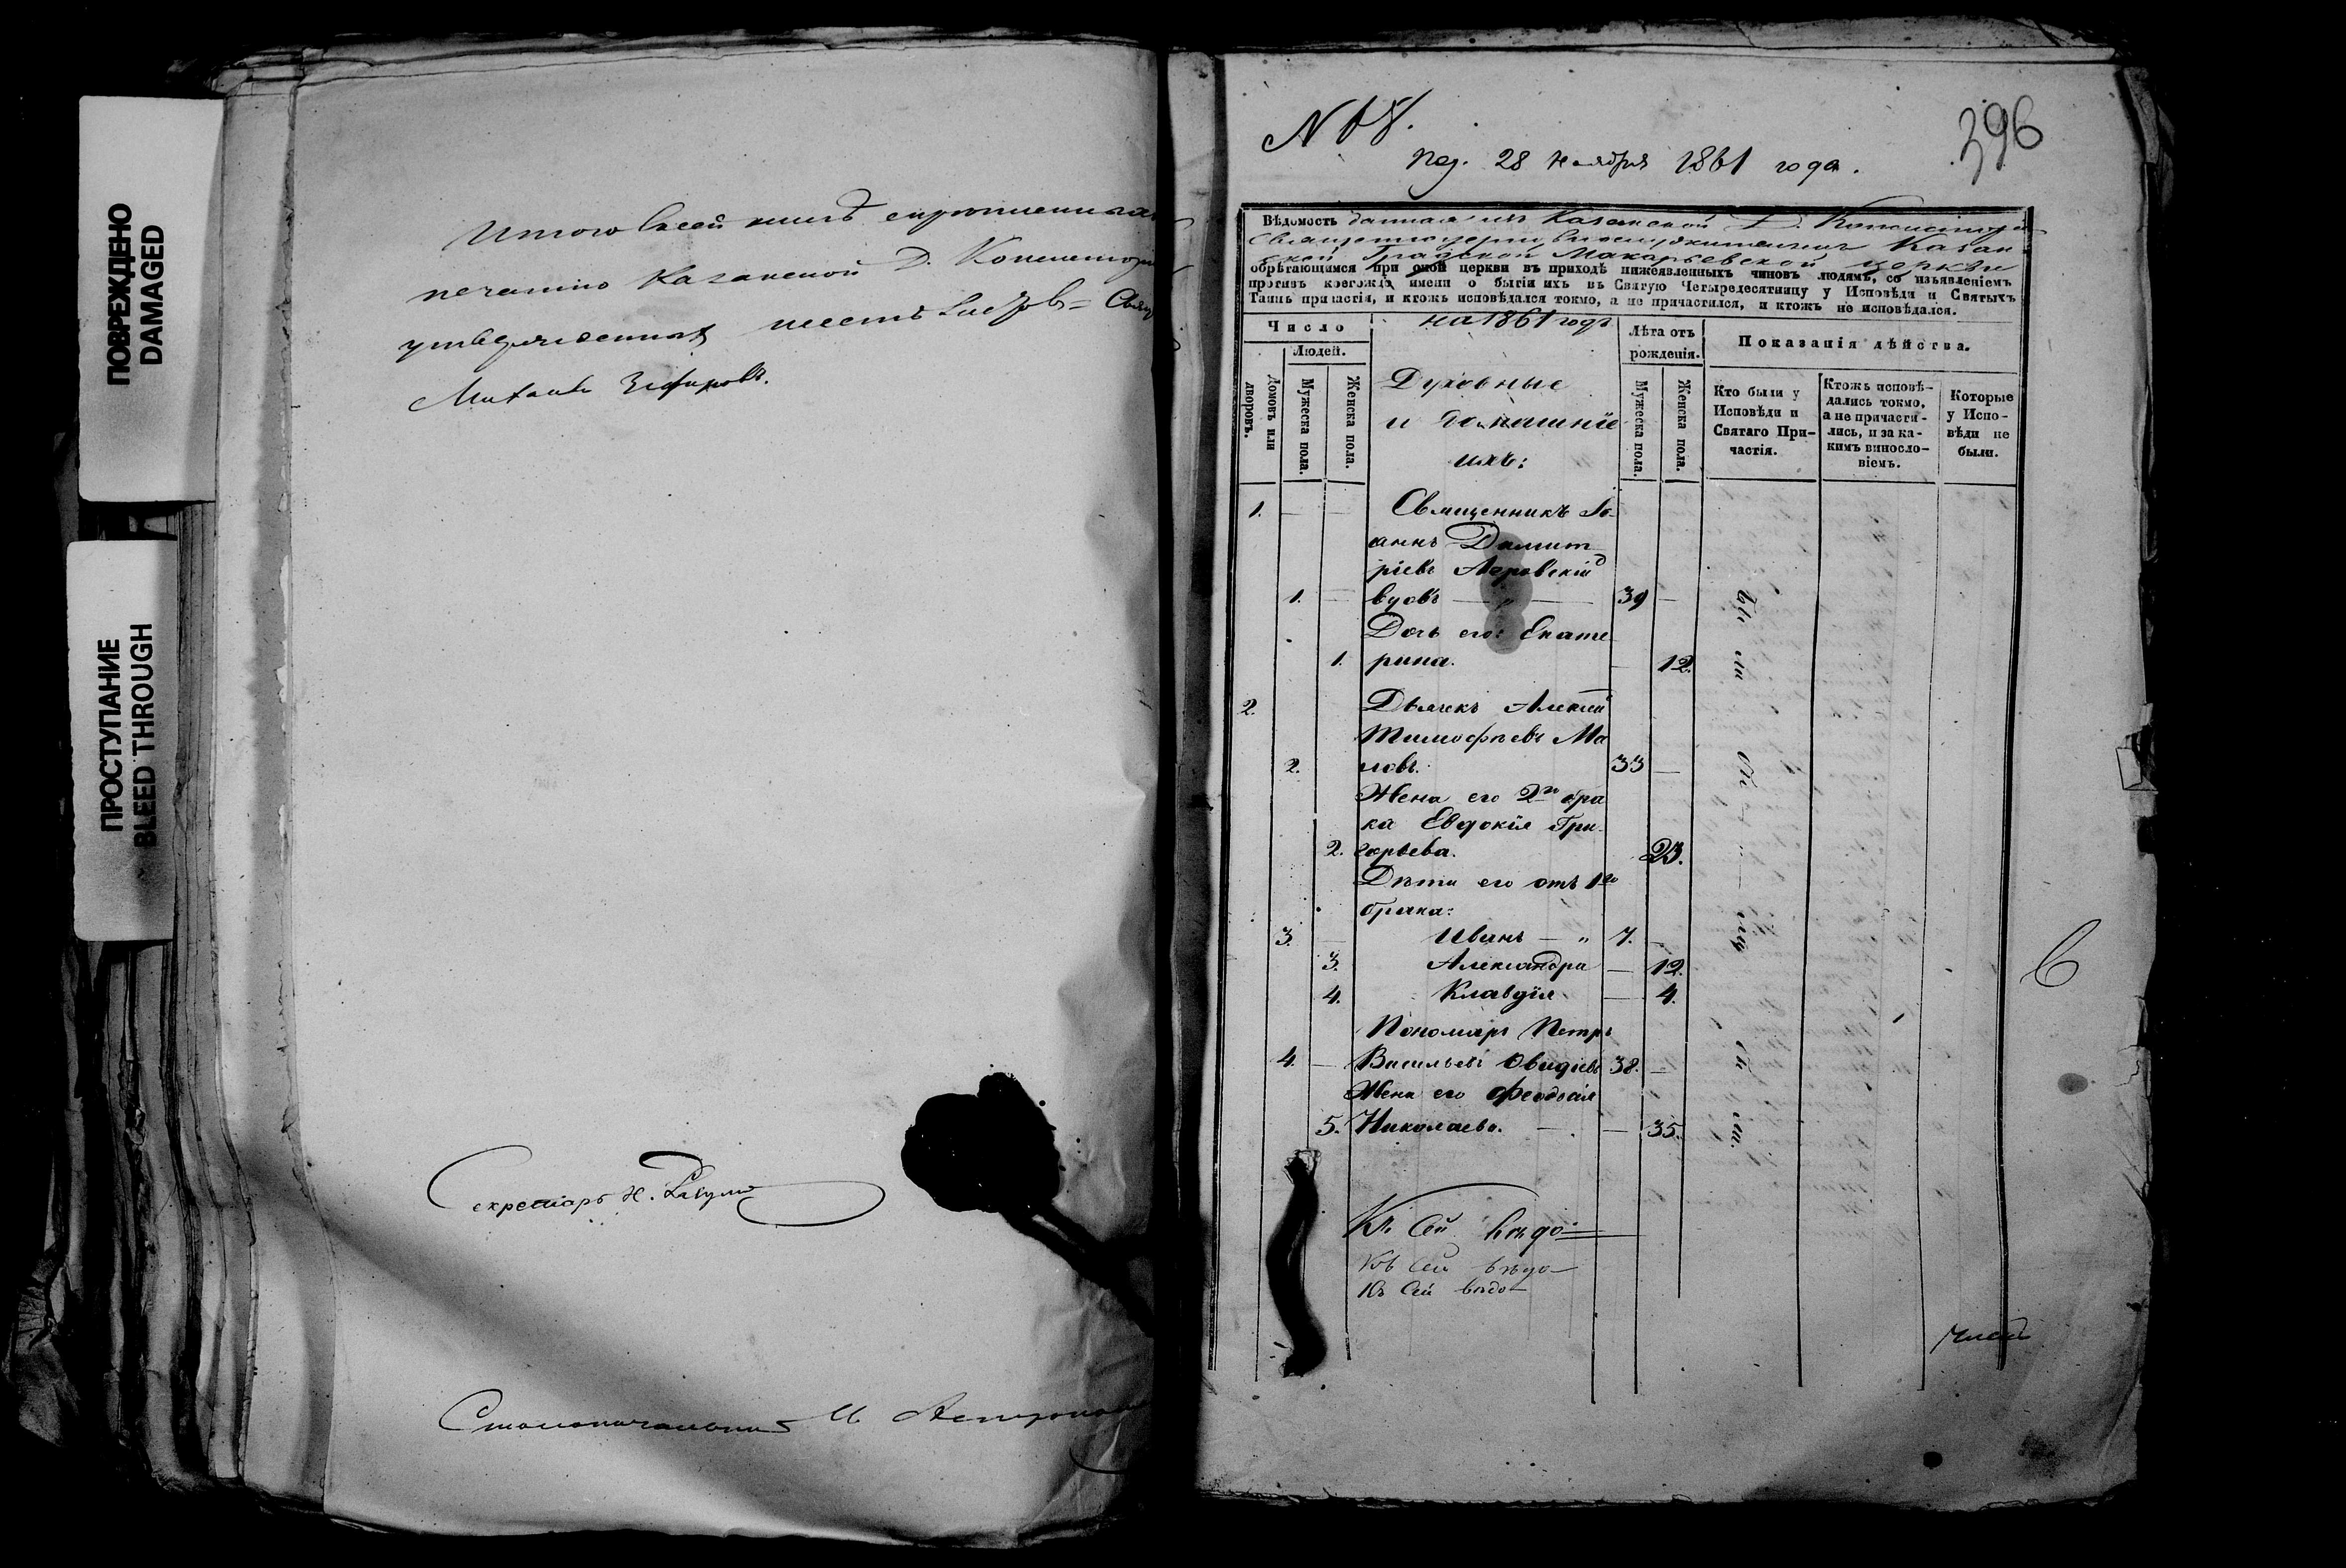 ПОВРЕЖДЕНО
DAMAGED
ПРОСТУПАНИЕ
BLEED THROUGH
Итого въ сей книгѣ скрѣпленныхъ
печатию Казанской Д. Консистор
утвержденныхъ шесть листовъ =
Михаилъ Зефировъ.
Секретарь Н.
Столоначальникъ
28 ноября 1861 года.
396
Вѣдомость данная изъ Казанской Д. Консистор
Казан
ской Градской Макарьевской церкви
обрѣтающимся при оной церкви въ приходѣ нижеявленныхъ чиновъ людямъ, со изъявленіемъ
противъ коегождо имени о бытіи ихъ въ Святую Четыредесятницу у Исповѣди и Святыхъ
Таинъ причастія, и ктожъ исповѣдался токмо, а не причастился, и ктожъ не исповѣдался.
на 1861 годъ
Число
Людей.
Домовъ или дворовъ.
Мужеска пола.
Женска пола.
Духовные
и домашніе
ихъ:
Лѣта отъ
рожденія.
Мужеска пола.
Женска пола.
Показанія дѣйства.
Кто были у
Исповѣди и
Святаго При-
частія.
Ктожъ исповѣ-
дались токмо,
а не причасти-
лись, и за ка-
кимъ винносло-
віемъ.
Которые
у Испо-
вѣди не
были.
1. Священникъ Іо-
аннъ Димит
ріевъ
1. вдовъ 39
Дочь его: Екате
1. рина. 12.
2. Дьячекъ Алексѣй
Тимофѣевъ Ма
2. ловъ. 33
Жена его 2го бра
ка Евдокія Гри-
2. горьева. 23.
Дѣти его отъ 1го
брака:
3. Иванъ — " 7.
3. Александра — 12.
4. Клавдія — 4.
Пономарь Петръ
4. Васильевъ Овидіевъ 38.
Жена его Феодосія
5. Николаева. 35.
Къ сей вѣдо=
Къ сей вѣдо
Къ сей вѣдо